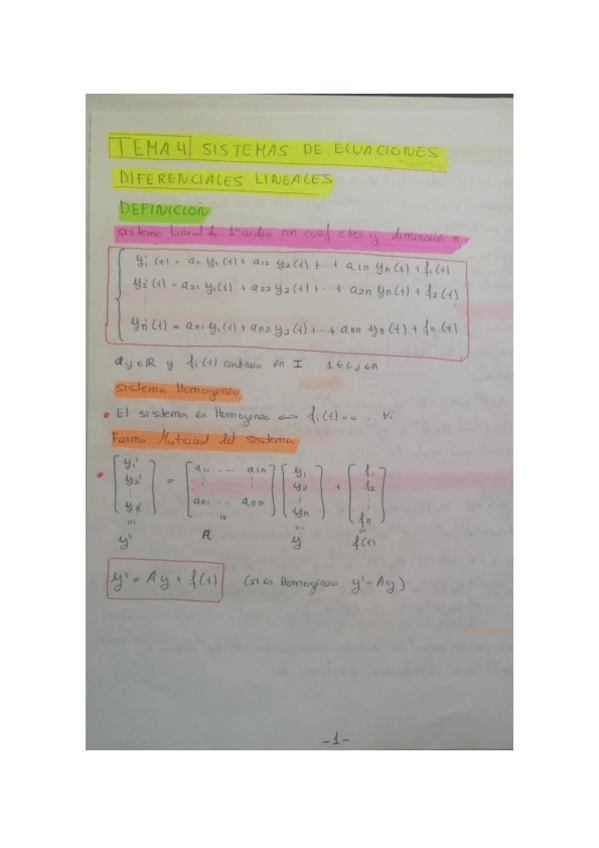 TEMA 4. SISTEMAS DE ECUACIONES
DIFERENCIALES LINEALES
DEFINICIÓN
sistema lineal de 1er orden con coef ctes y dimensión n
y₁'(t) = a₁₁ y₁(t) + a₁₂ y₂(t) + ... + a₁n yn(t) + f₁(t)
y₂'(t) = a₂₁ y₁(t) + a₂₂ y₂(t) + ... + a₂n yn(t) + f₂(t)
⋮
yn'(t) = an₁ y₁(t) + an₂ y₂(t) + ... + ann yn(t) + fn(t)
aij ∈ R y fi(t) continua en I. 1≤i,j≤n
sistema Homogeneo
• El sistema es Homogeneo ⇔ fi(t)=0. ∀i
Forma Matricial del sistema
• [y₁' y₂' ⋮ yn'] = [a₁₁ ... a₁n ⋮ ⋮ an₁ ... ann] [y₁ y₂ ⋮ yn] + [f₁ f₂ ⋮ fn]
y' A y f(t)
y' = Ay + f(t) (si es Homogéneo y'=Ay)
-1-